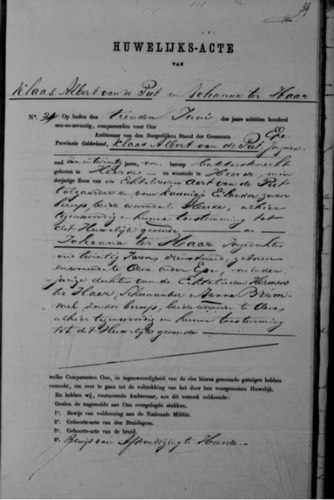 34
HUWELIJKS-ACTE
VAN
Klaas Albert van de Put en Johanna ter Haar
No. 34 Op heden den tienden Juni des jaars achttien honderd
een-en-zeventig, compareerden voor Ons
Ambtenaar van den Burgerlijken Stand der Gemeente Epe
Provincie Gelderland, Klaas Albert van de Put, jongman
oud twintig jaren, van beroep bakkersknecht
geboren te Heerde en wonende te Heerde, min-
derjarige Zoon van de Echtelieden Aart van de Put
en
beroep, beide wonende te Heerde, alhier
tegenwoordig en hunne toestemming tot
dit Huwelijk gevende en
Johanna ter Haar, jongedochter
twintig Jaren, dienstmeid, geboren
en wonende te Oene onder Epe, minder-
jarige dochter van de Echtelieden Hermen
ter Haar, Schoenmaker en Janna Brum-
mel, zonder beroep, beide wonende te Oene,
alhier tegenwoordig en hunne toestemming
tot dit Huwelijk gevende
welke Comparanten Ons, in tegenwoordigheid van de vier hierna genoemde getuigen hebben
verzocht, om over te gaan tot de voltrekking van het door hen voorgenomen Huwelijk.
En hebben wij, voornoemde Ambtenaar, aan dit verzoek voldoende:
Gezien de nagemelde aan Ons overgelegde stukken.
1o. Bewijs van voldoening aan de Nationale Militie.
2o. Geboorte-acte van den Bruidegom.
3o. Geboorte-acte van de bruid.
4o. Bewijs van Afkondiging te Heerde